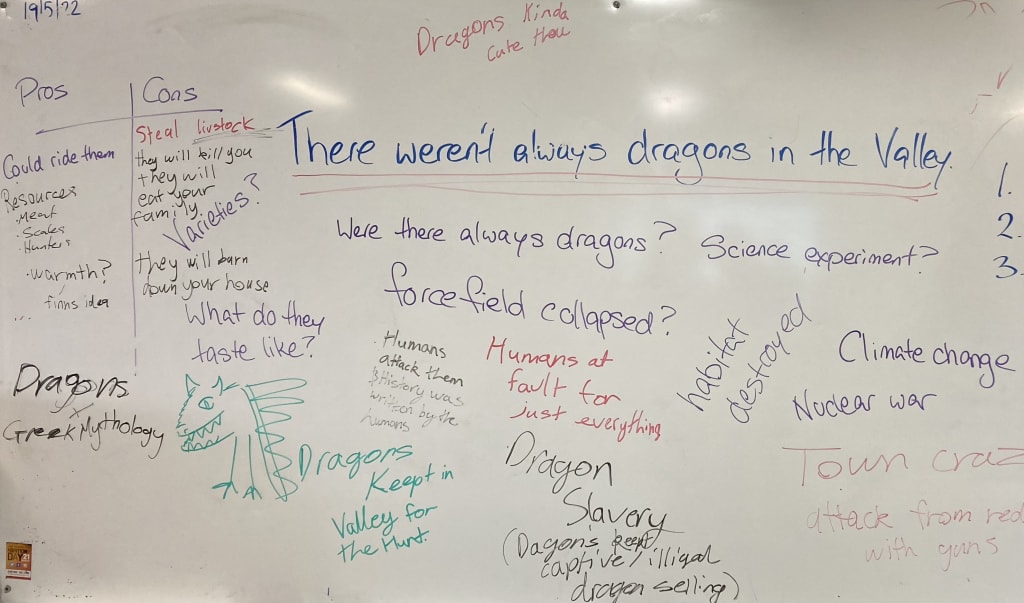 19/5/22
Dragons Kinda
Cute thou
Pros
Cons
Could ride them
Resources
· Meat
· Scales
· Hunters
· warmth?
finns idea
...
Steal livstock
they will kill you
they will
eat your
family.
Varieties?
they will barn
down your house
There weren't always dragons in the Valley.
1.
2.
3.
Were there always dragons?
Science experiment?
forcefield collapsed?
What do they
taste like?
· Humans
attack them
& History was
written by the
humans
Humans at
fault for
just everything
habitat
destroyed
Climate change
Nuclear war
Dragons
x
Greek Mythology
Dragons
Keept in
Valley for
the Hunt.
Dragon
Slavery
(Dagons kept
captive / illigal
dragon selling)
Town craz
attack from red
with guns